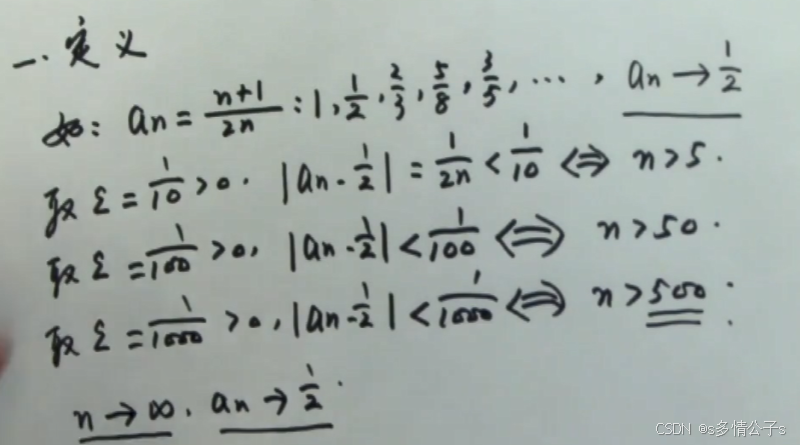 一. 定义
如: an = \frac{n+1}{2n} : 1, \frac{1}{2}, \frac{2}{3}, \frac{5}{8}, \frac{3}{5}, ⋯, an → \frac{1}{2}
取 ε = \frac{1}{10} > 0. |an - \frac{1}{2}| = \frac{1}{2n} < \frac{1}{10} ⇔ n > 5.
取 ε = \frac{1}{100} > 0, |an - \frac{1}{2}| < \frac{1}{100} ⇔ n > 50.
取 ε = \frac{1}{1000} > 0, |an - \frac{1}{2}| < \frac{1}{1000} ⇔ n > 500 :
n → ∞. an → \frac{1}{2}.
CSDN @s多情公子s